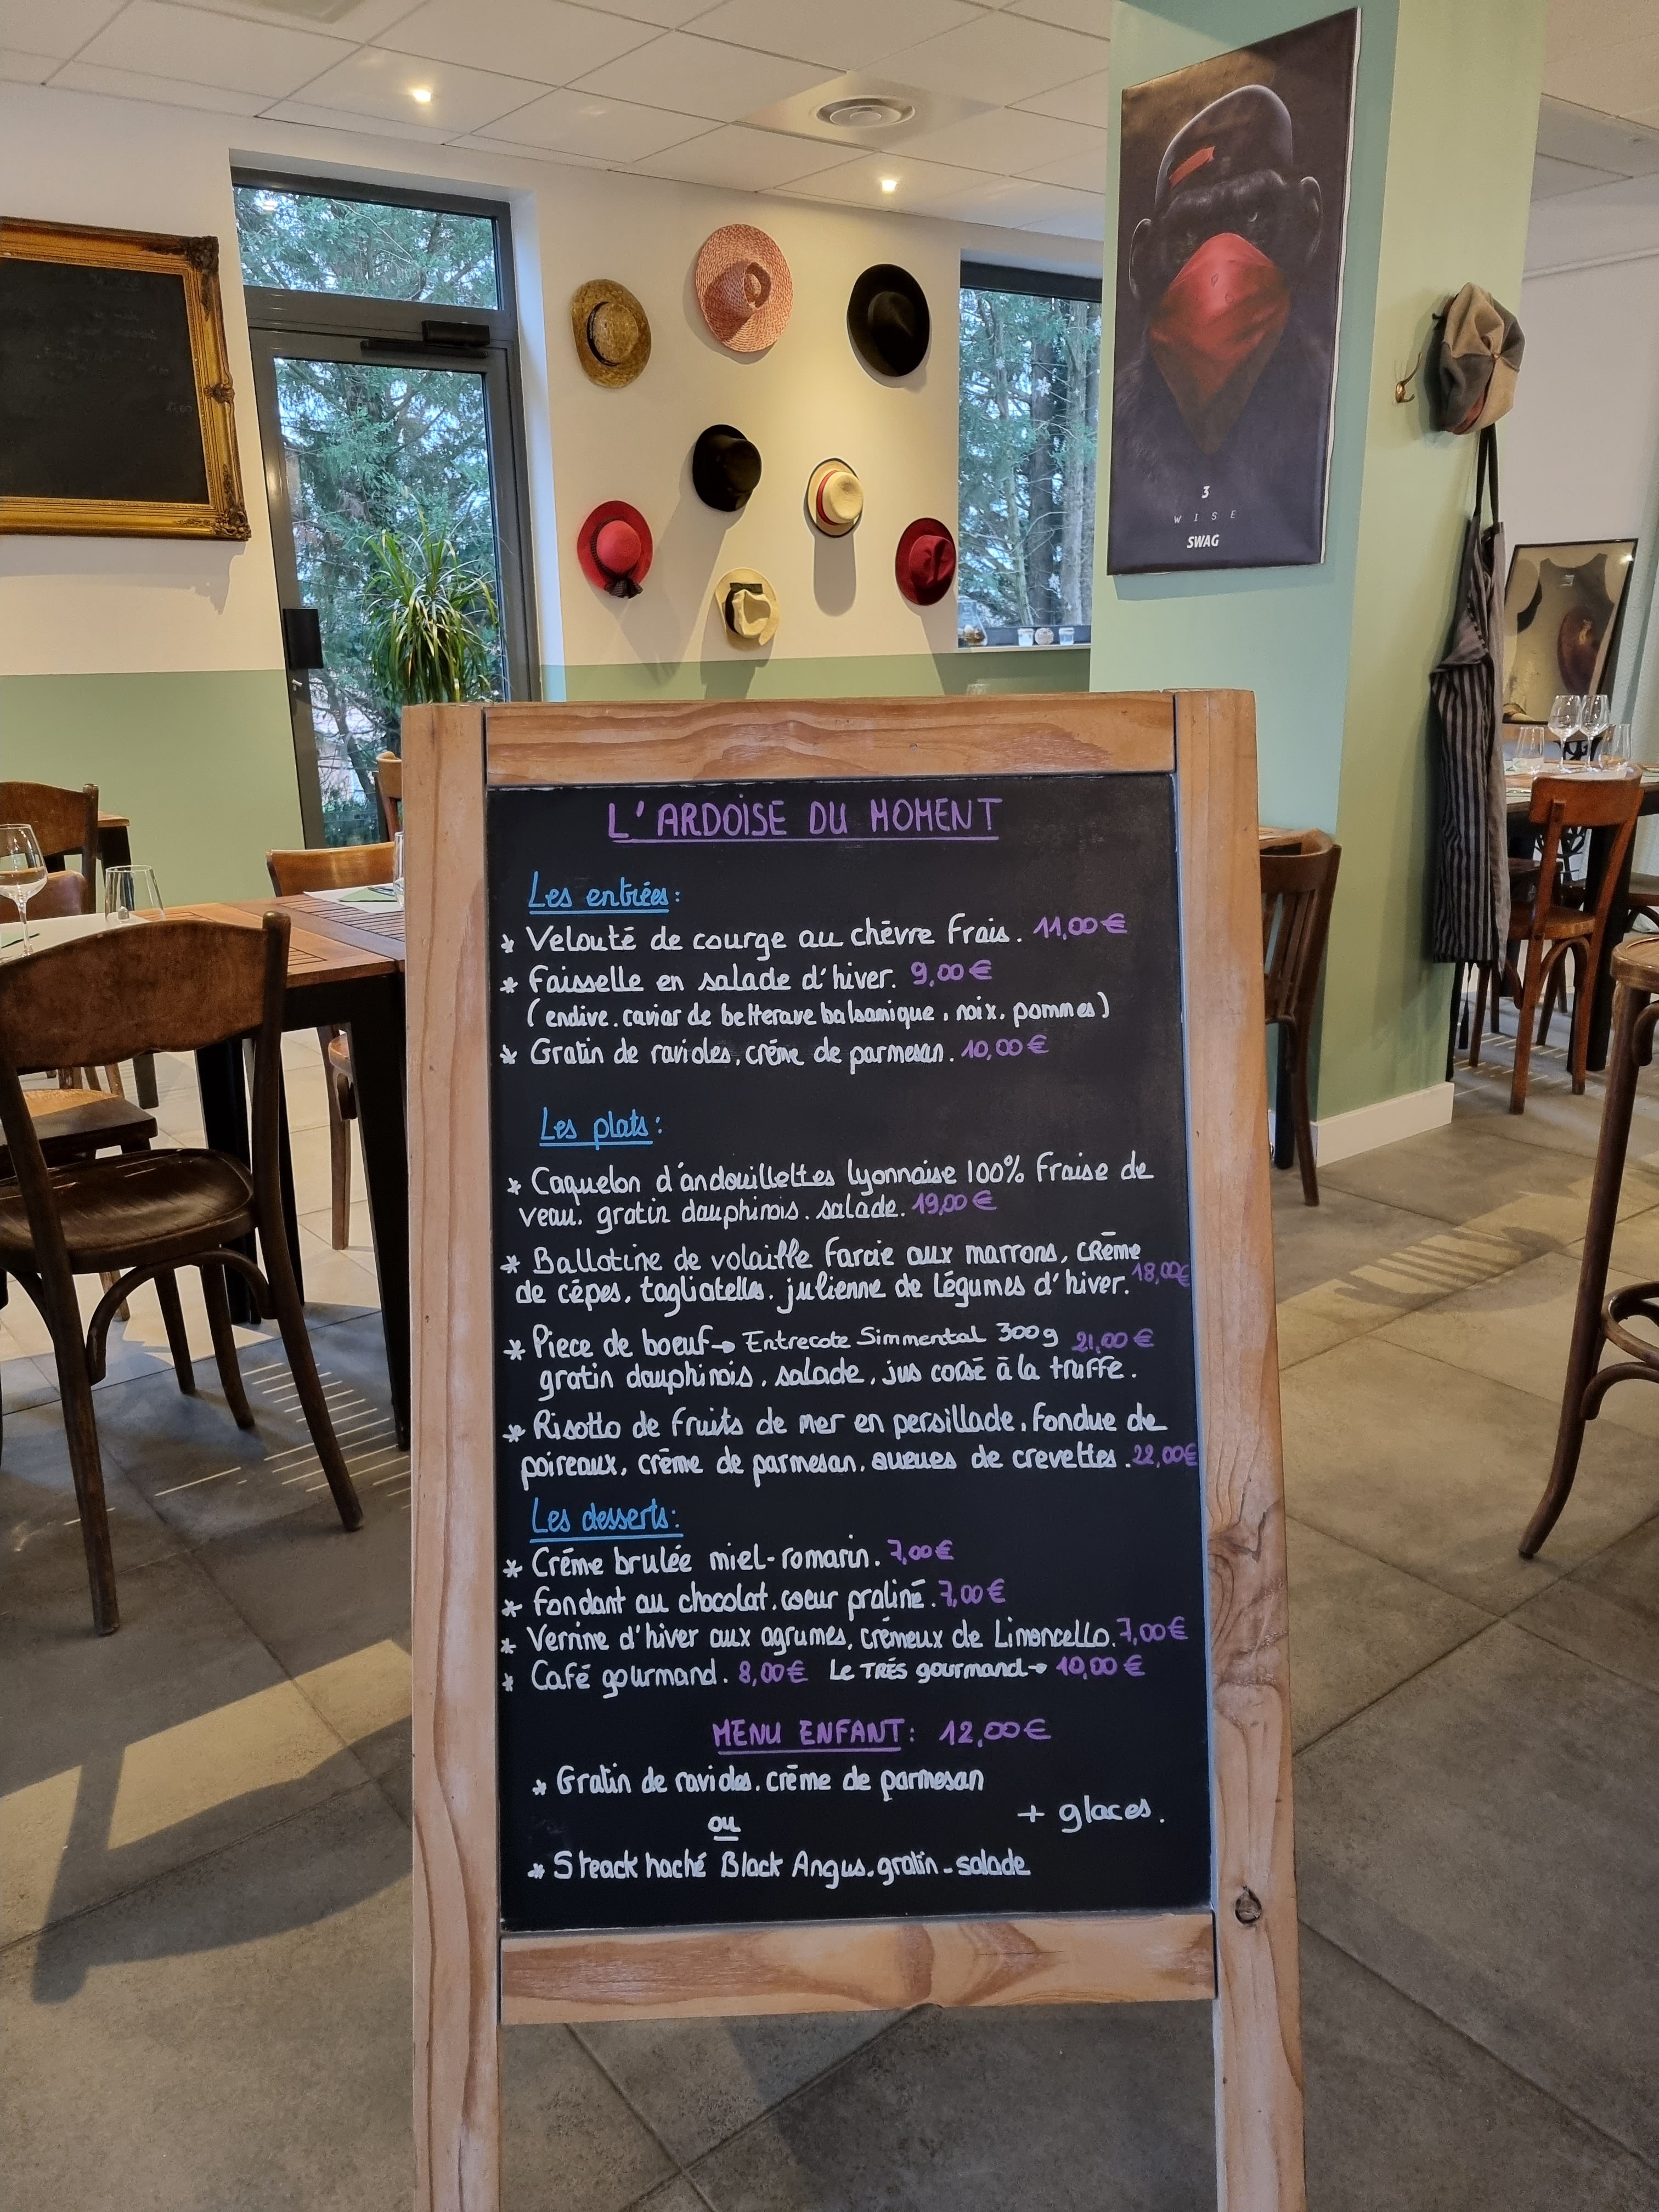 3
WISE
SWAG
L'ARDOISE DU MOMENT
Les entrées:
* Velouté de courge au chèvre Frais. 11,00€
* Faisselle en salade d'hiver. 9,00€
(endive. caviar de betterave balsamique, noix, pommes)
* Gratin de ravioles, crème de parmesan. 10,00€
Les plats:
* Caquelon d'andouillettes lyonnaise 100% Fraise de
veau, gratin dauphinois, salade. 19,00€
* Ballotine de volaille Farcie aux marrons, crème
de cèpes, tagliatelles, julienne de légumes d'hiver. 18,00€
* Piece de boeuf → Entrecote Simmental 300g 21,00€
gratin dauphinois, salade, jus corsé à la truffe.
* Risotto de Fruits de mer en persillade, Fondue de
poireaux, crème de parmesan, queues de crevettes. 22,00€
Les desserts:
* Créme brulée miel-romarin. 7,00€
* Fondant au chocolat, coeur praliné. 7,00€
* Verrine d'hiver aux agrumes, crémeux de Limoncello. 7,00€
* Café gourmand. 8,00€ Le TRÉS gourmand → 10,00€
MENU ENFANT: 12,00€
* Gratin de ravioles, crème de parmesan
ou
+ glaces.
* Steack haché Black Angus, gratin - salade